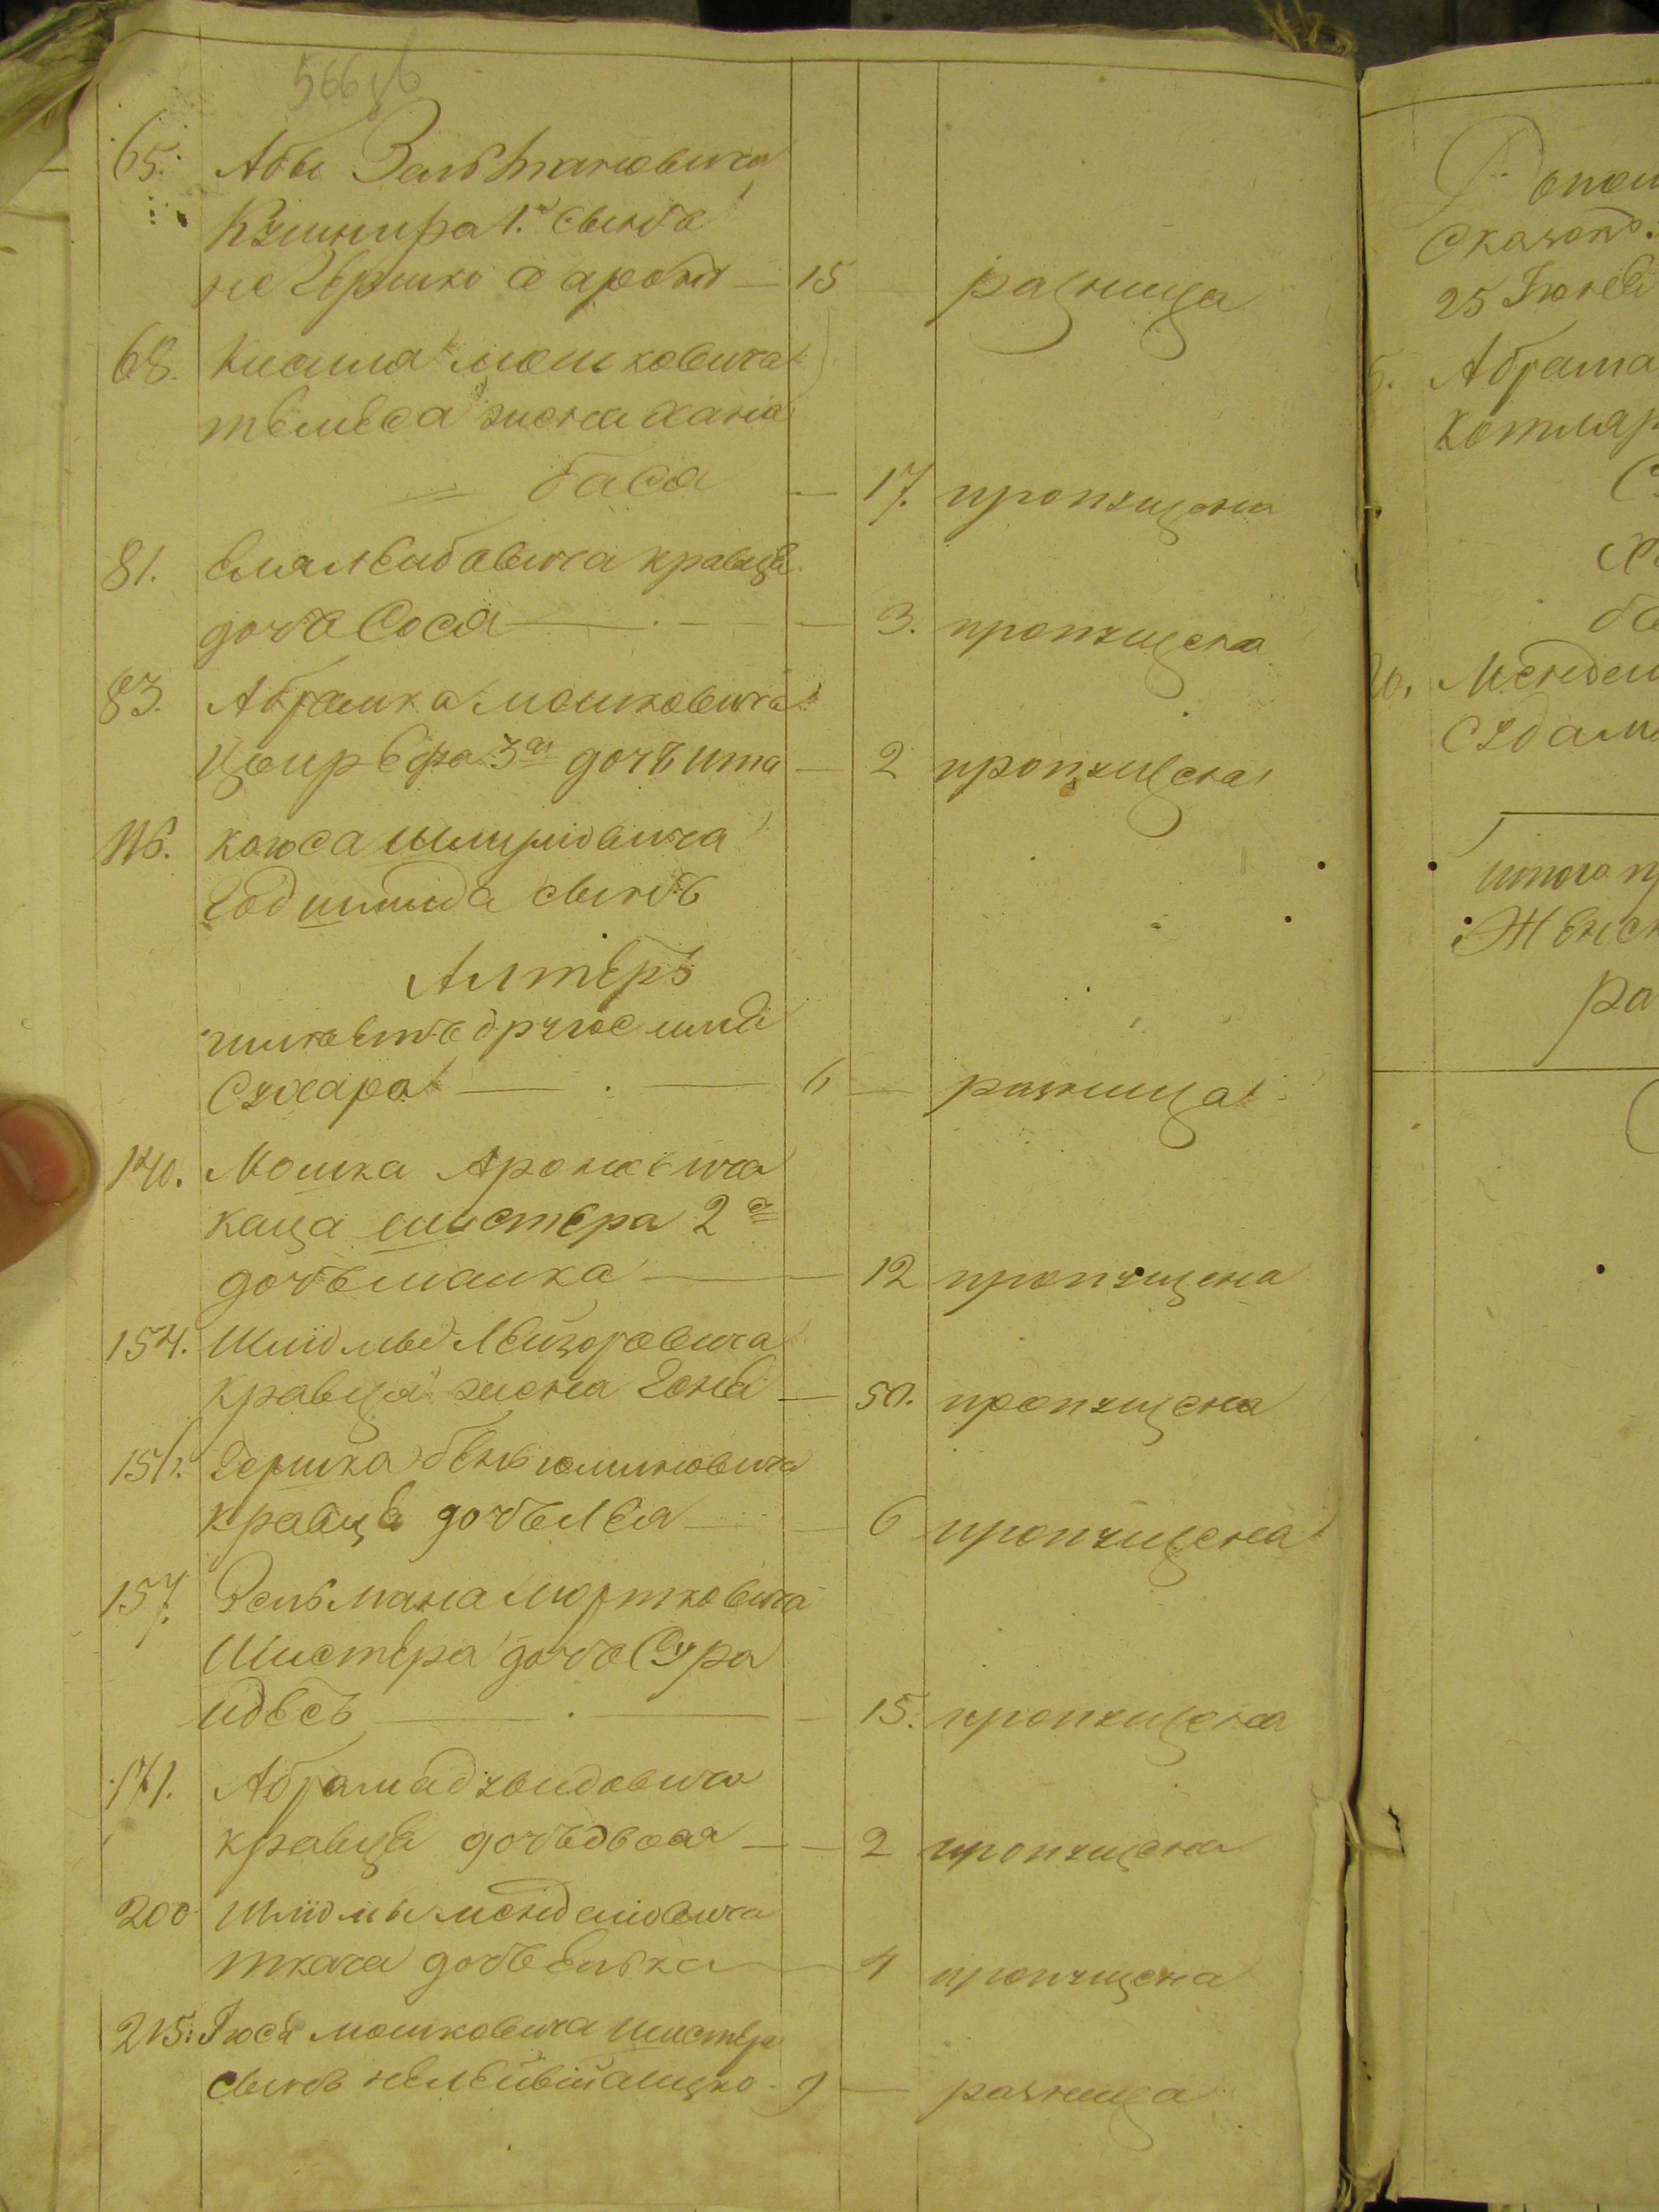 566 об
65. Абы Зальмановича
Кушнира 1й сынъ
не Гершко а аронъ — 15 — разница
68. Кисила мошковича
тельеса жена хана
баса — 17. пропущена
81. Еля лейбовича кравца
дочь Соса — 3. пропущена
83. Абрамка мошковича
3ая дочь ита — 2 пропущена
116. шмуловича
сынъ
Алтеръ
имѣетъ другое имя
Сухаръ — 6 — разница
140. Мошка Ароновича
каца шистера 2я
дочь малка — 12 пропущена
154. Шлiомы Лейзоровича
кравца жена Геня — 50. пропущена
156. Гершка беньюминовича
кравца дочь Лея — 6 пропущена
157. Зельмана мортковича
Шистера дочь Сура
идесъ — 15. пропущена
171. Абрама давидовича
кравца дочь двося — 2 пропущена
200 Шлiомы менделiовича
ткача дочь Елька — 4 пропущена
215: Iося мошковича шистера
сынъ не лейви а ицко — 9 — разница
25 Iюля
Абрама
Котляр
Мендел
итого пр
Женск
ра